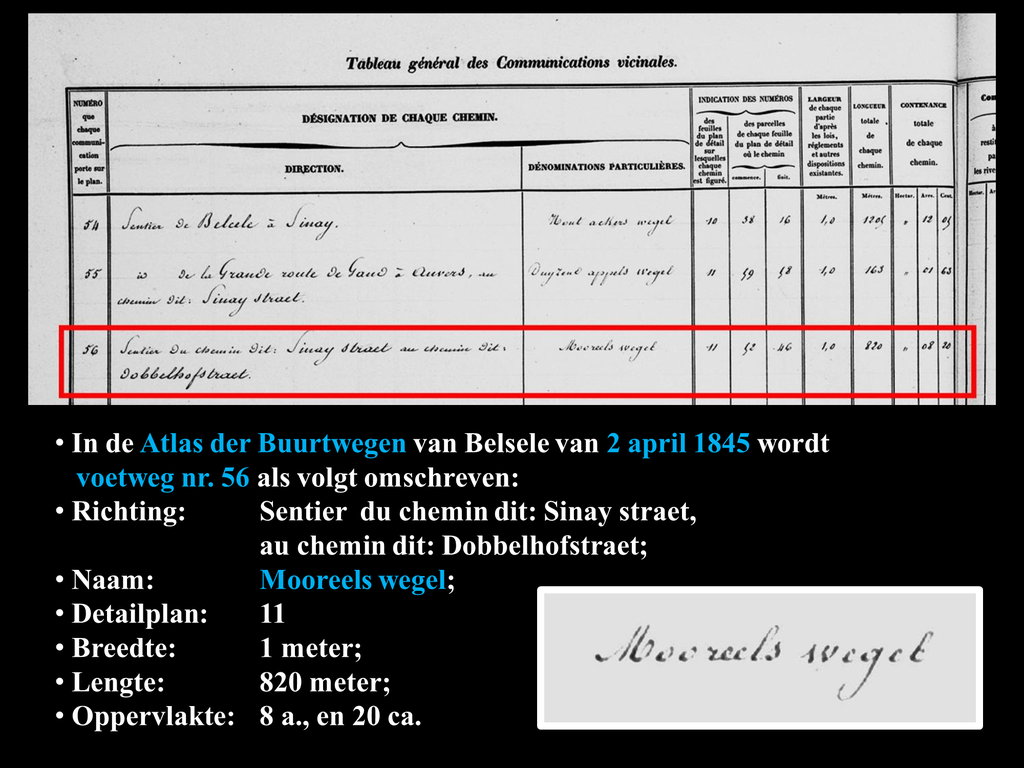 Tableau général des Communications vicinales.
NUMÉRO
que
chaque
communi-
cation
porte sur
le plan.
DÉSIGNATION DE CHAQUE CHEMIN.
DIRECTION.
DÉNOMINATIONS PARTICULIÈRES.
INDICATION DES NUMÉROS
des
feuilles
du plan
de détail
sur
lesquelles
chaque
chemin
est figuré.
des parcelles
de chaque feuille
du plan de détail
où le chemin
commence.
finit.
LARGEUR
de chaque
partie
d'après
les lois,
réglements
et autres
dispositions
existantes.
LONGUEUR
totale
de
chaque
chemin.
CONTENANCE
totale
de chaque
chemin.
Mètres.
Mètres.
Hectar.
Ares.
Cent.
54 Sentier de Belcele à Sinay. Hout ackers wegel 10 38 16 1,0 1205 " 12 05
55 id de la Grande route de Gand à Anvers, au 11 59 58 1,0 163 " 01 63
chemin dit: Sinay straet.
56 Sentier du chemin dit: Sinay straet au chemin dit: Mooreels wegel 11 52 46 1,0 820 " 08 20
Dobbelhofstraet.
• In de Atlas der Buurtwegen van Belsele van 2 april 1845 wordt
voetweg nr. 56 als volgt omschreven:
• Richting: Sentier du chemin dit: Sinay straet,
au chemin dit: Dobbelhofstraet;
• Naam: Mooreels wegel;
• Detailplan: 11
• Breedte: 1 meter;
• Lengte: 820 meter;
• Oppervlakte: 8 a., en 20 ca.
Mooreels wegel